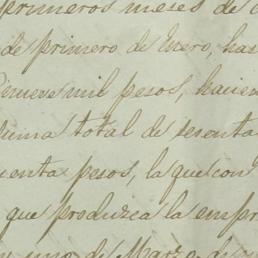 primeros meses de
de primero de Enero, has
Nueve mil pesos, hacien
suma total de sesenta
cuenta pesos, la que con
que produzca la empr
uno de Marzo de